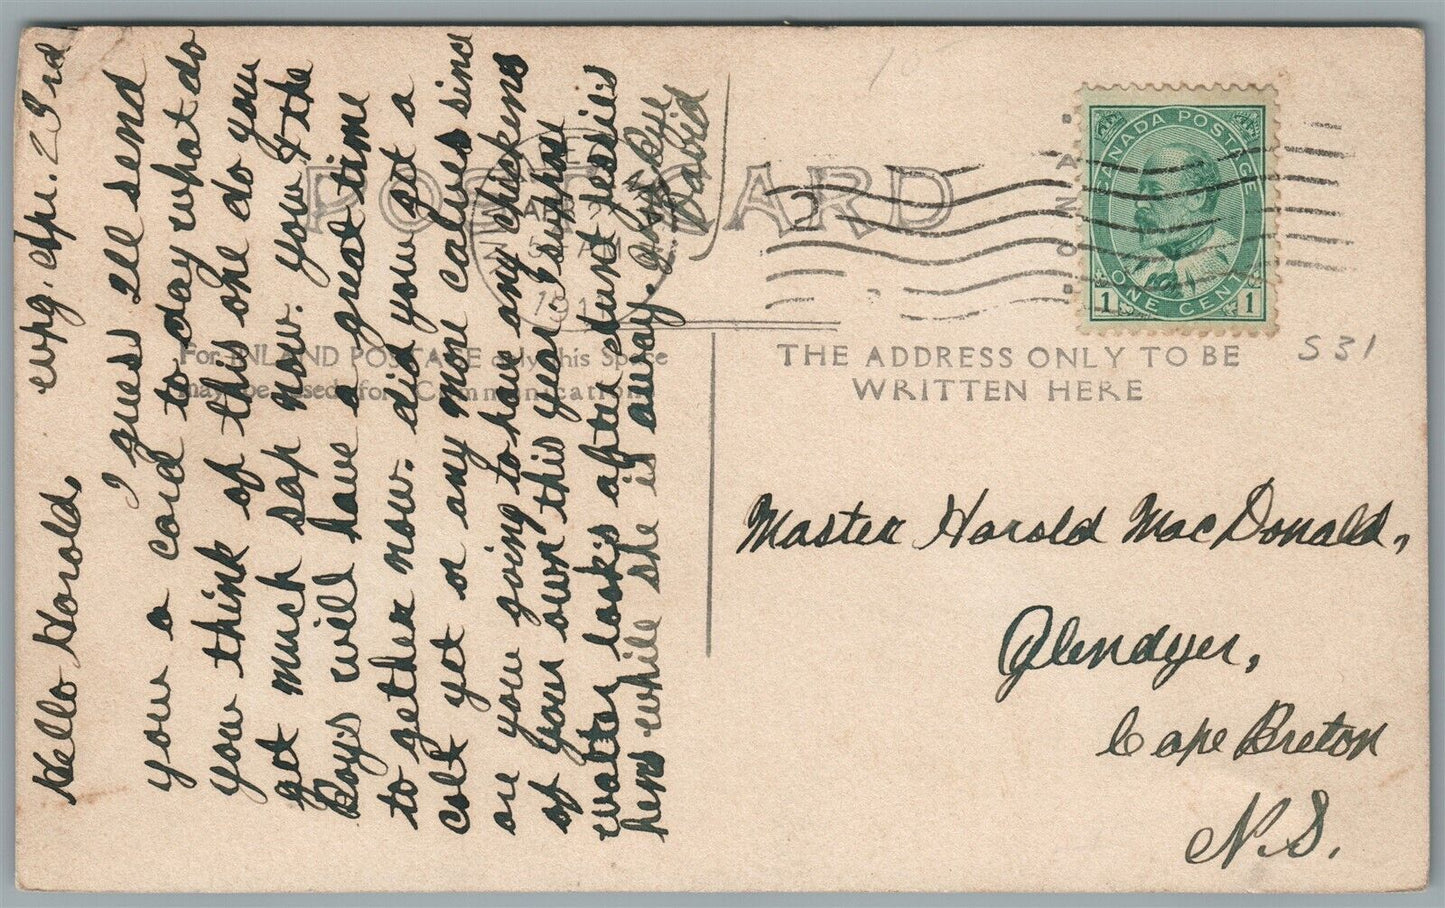 Hello Harold, Wpg. Apr. 23rd
I guess Ill send
you a card to day what do
you think of this one do you
get much sap now. you & the
Boys will have a great time
to gether now. did you get a
colt yet or any more calves since
are you going to have any chickens
of your own this year I supose
Walter looks after aunt Jessie's
hens while she is away.
David
POST CARD
For INLAND POSTAGE only this Space
may be used for Communication
THE ADDRESS ONLY TO BE
WRITTEN HERE
CANADA POSTAGE
1 ONE CENT 1
2
CANADA
531
Master Harold MacDonald,
Glendyer,
Cape Breton
N.S.